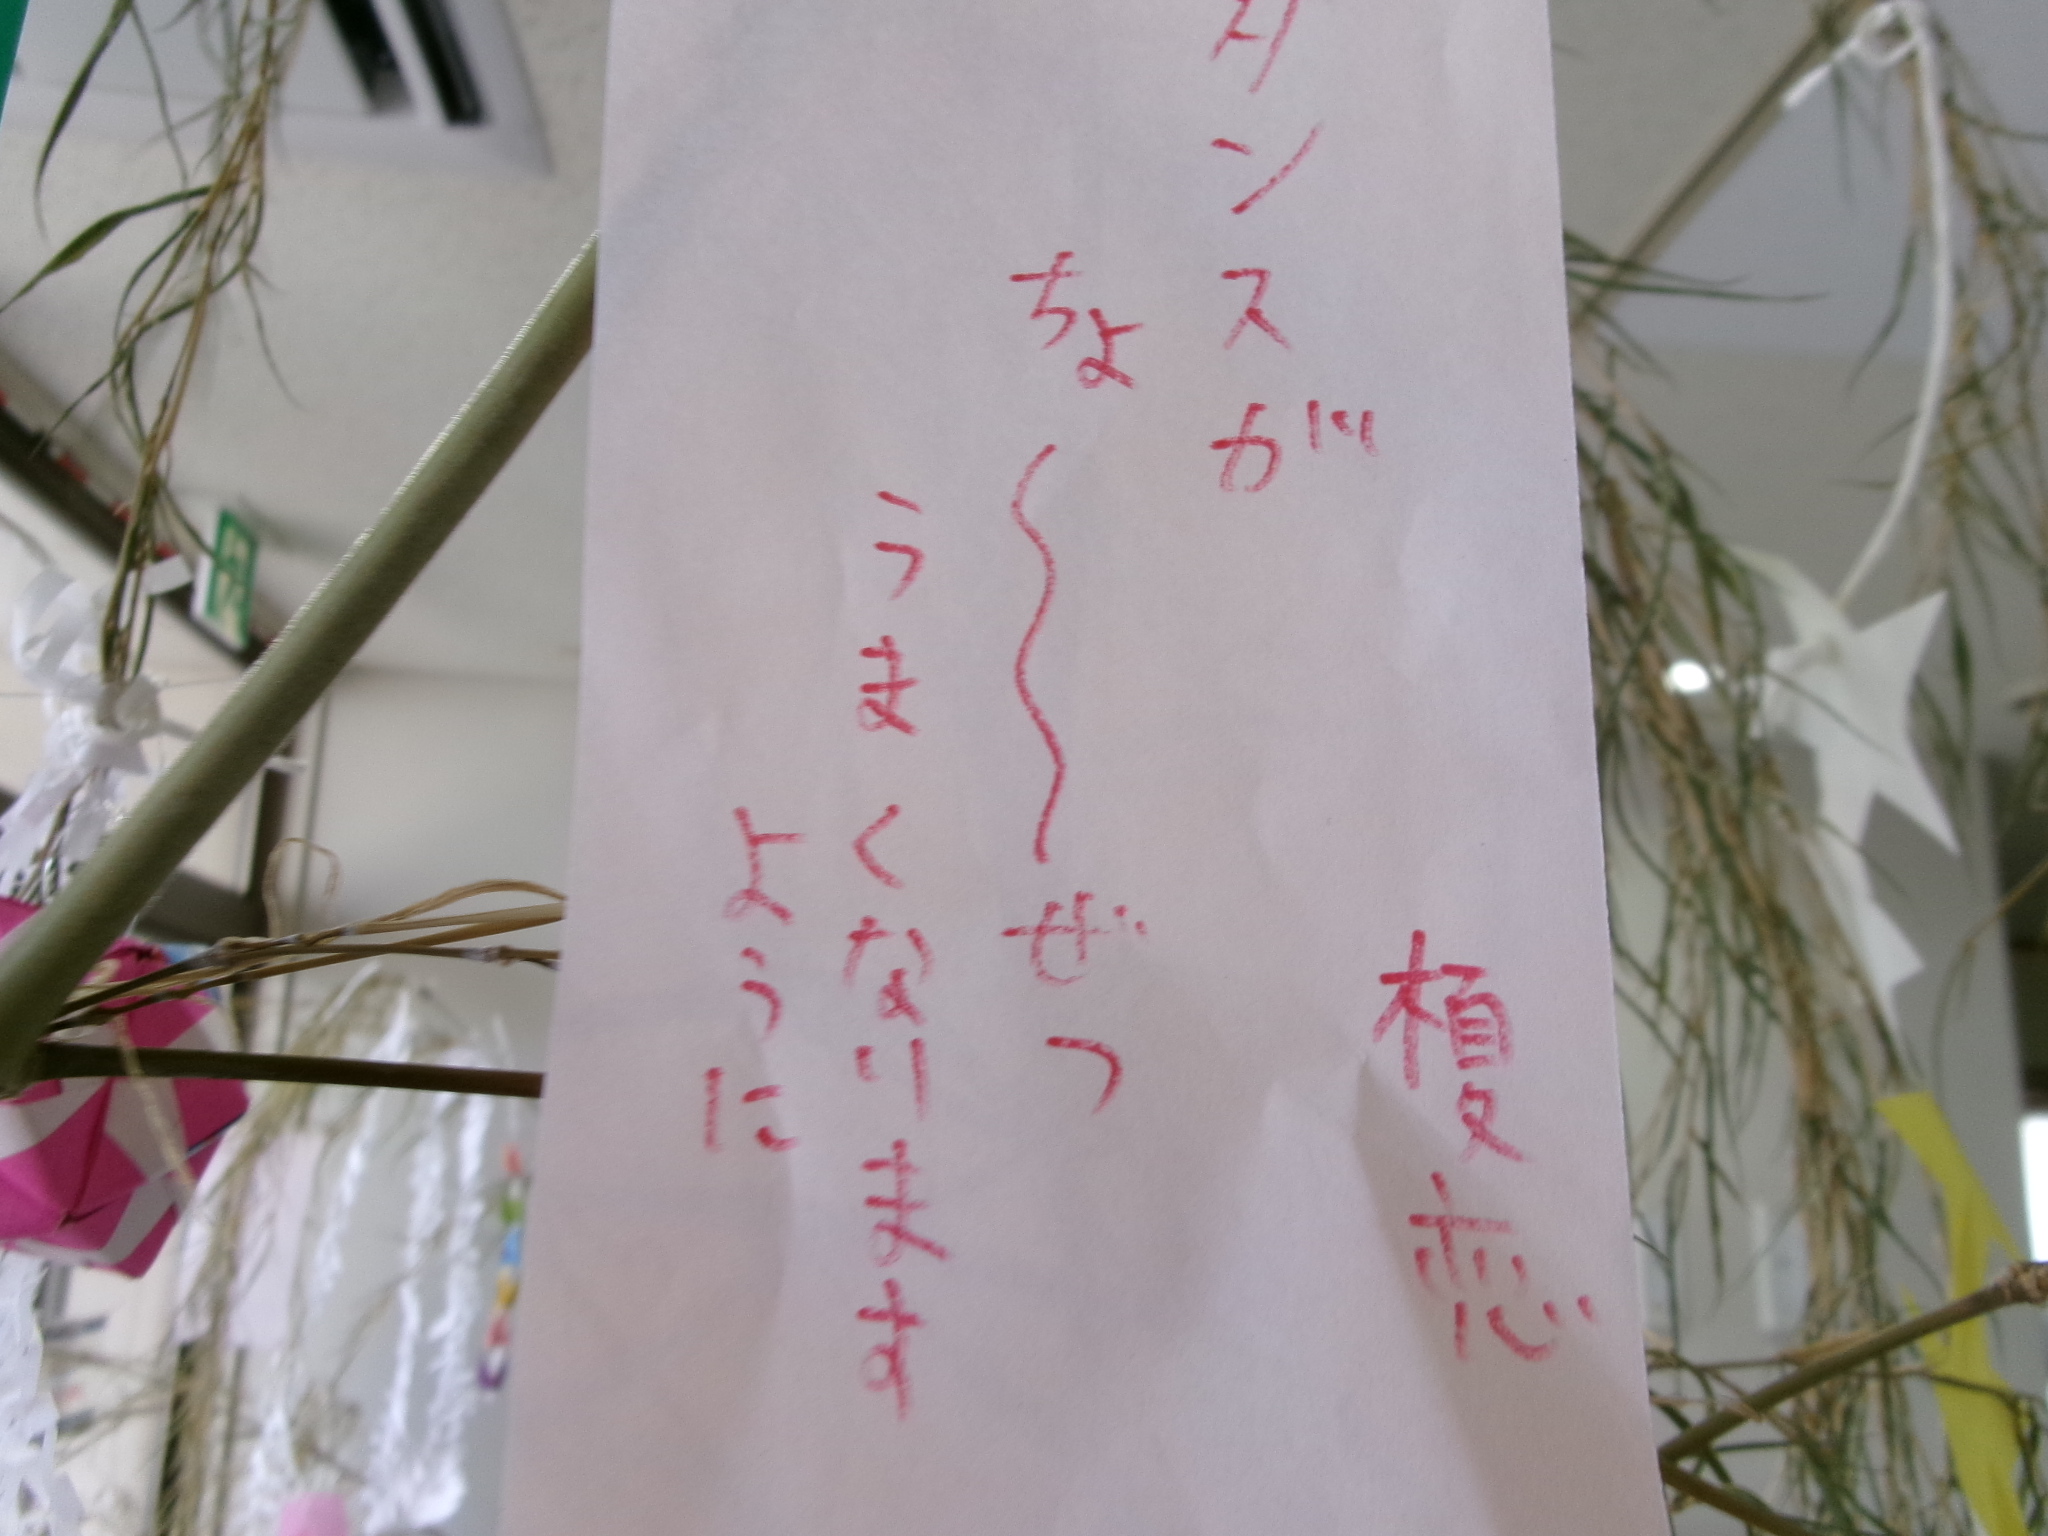 榎恋
ダンスが
ちょ〜ぜつ
うまくなります
ように